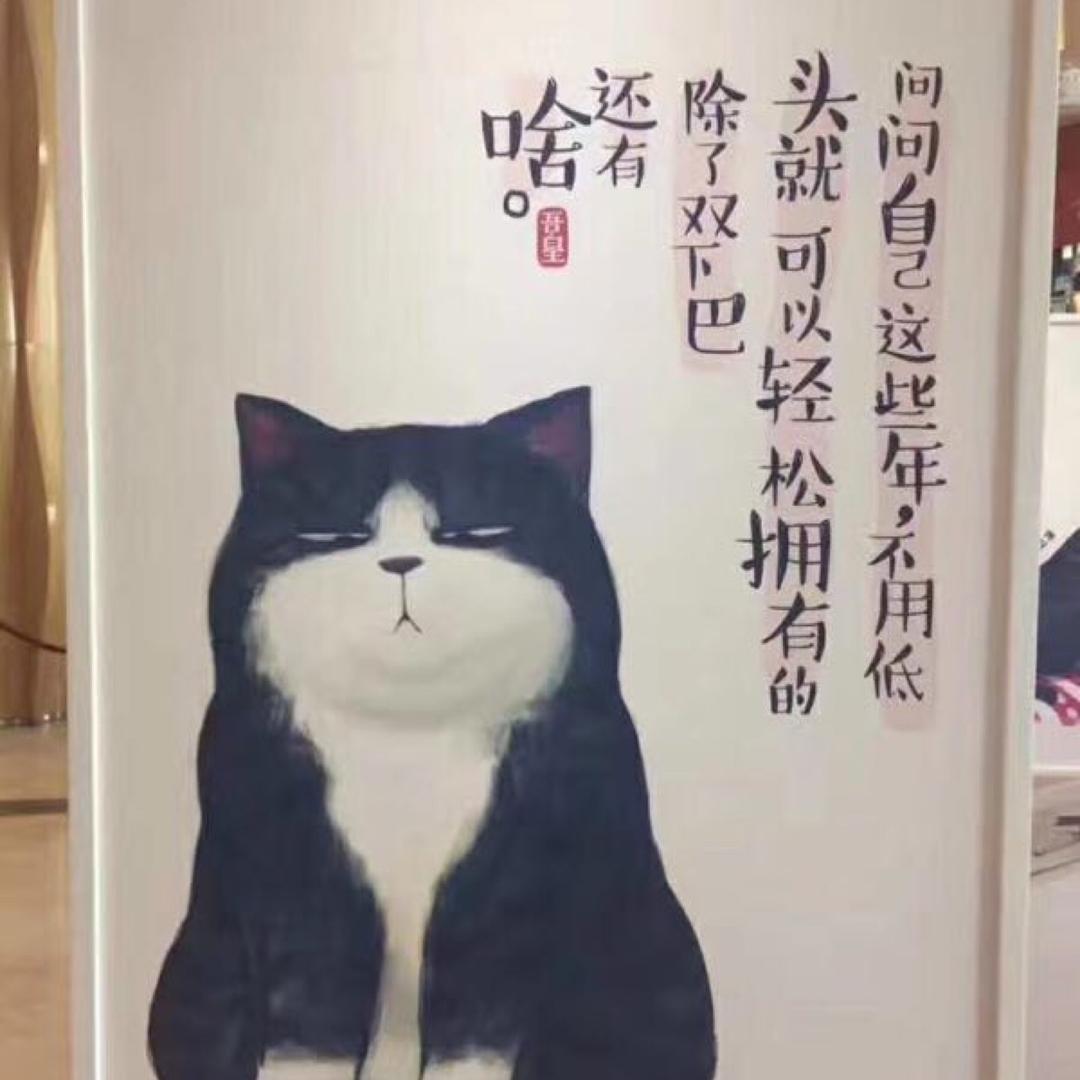 问问自己这些年，不用低
头就可以轻松拥有的
除了双下巴
还有
啥。
吾皇